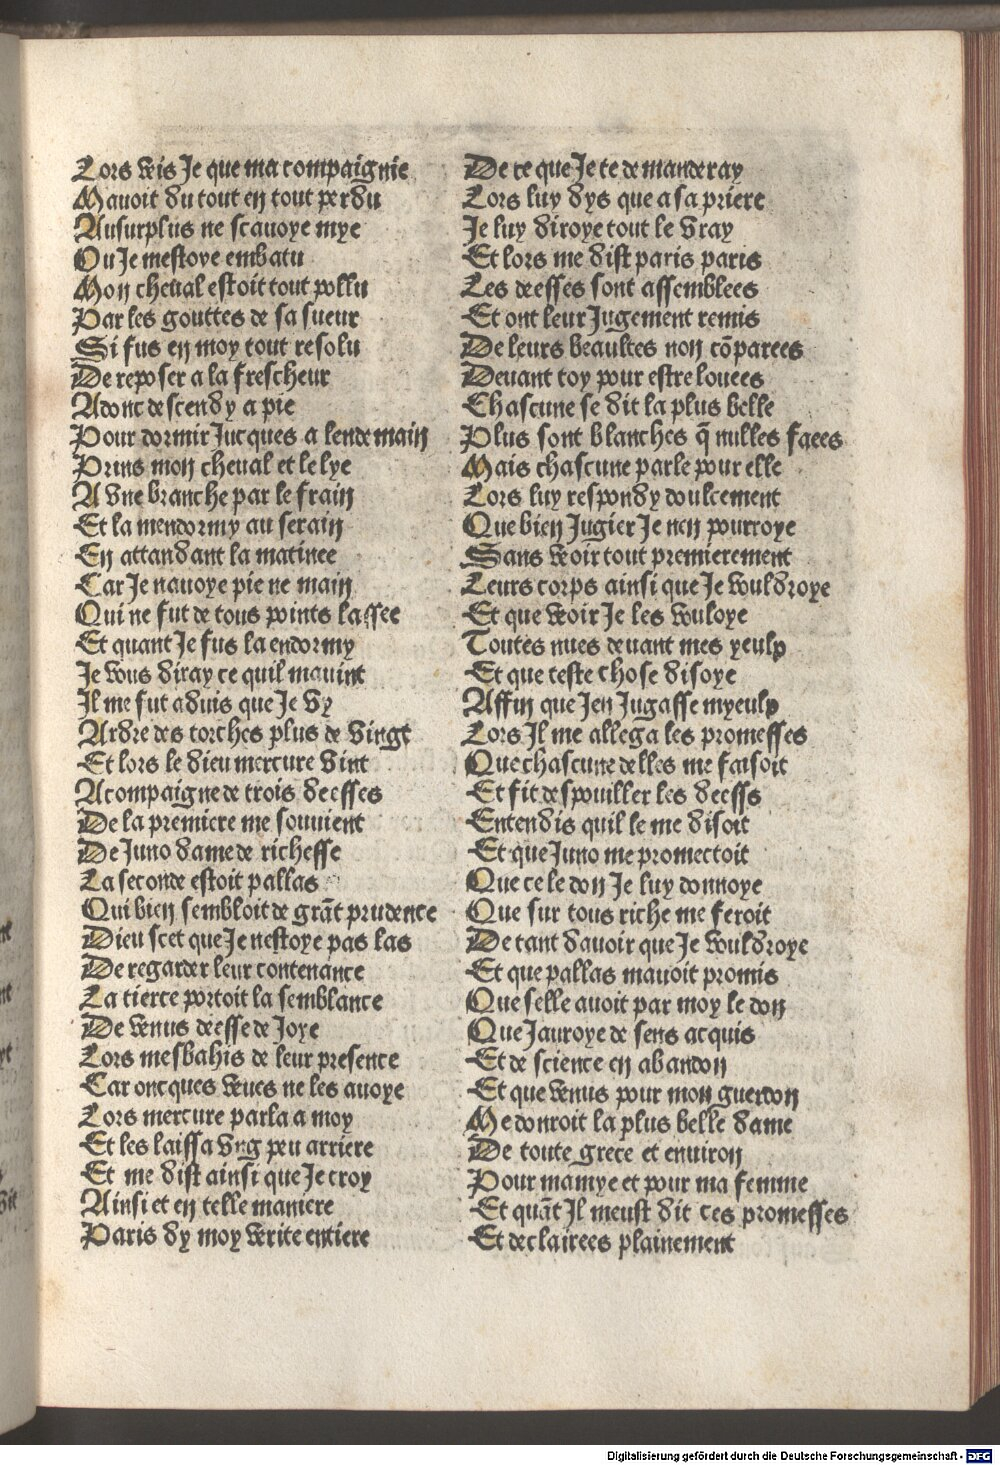 Lors veis Je que ma compaignie
Mavoit du tout en tout perdu
Ausurplus ne scavoye mye
Ou Je mestoye embatu
Mon cheual estoit tout pollu
Par les gouttes de sa sueur
Si fus en moy tout resolu
De reposer a la frescheur
Adonc descendy a pie
Pour dormir Jucques a lendemain
Prins mon cheual et le lye
A vne branche par le frain
Et la mendormy au serain
En attandant la matinee
Car Je nauoye pie ne main
Qui ne fut de tous points lassee
Et quant Je fus la endormy
Je vous diray ce quil mauint
Il me fut aduis que Je vy
Ardre des torches plus de vingt
Et lors le dieu mercure vint
Acompaigne de trois deesses
De la premiere me souuient
De Juno dame de richesse
La seconde estoit pallas
Qui bien sembloit de grãt prudence
Dieu scet que Je nestoye pas las
De regarder leur contenance
La tierce portoit la semblance
De venus deesse de Joye
Lors mesbahis de leur presence
Car oncques veues ne les auoye
Lors mercure parla a moy
Et les laissa vng peu arriere
Et me dist ainsi que Je croy
Ainsi et en telle maniere
Paris dy moy verite entiere
De ce que Je te demanderay
Lors luy dys que a sa priere
Je luy diroye tout le vray
Et lors me dist paris paris
Les deesses sont assemblees
Et ont leur Jugement remis
De leurs beaultes non cõparees
Deuant toy pour estre louees
Chascune se dit la plus belle
Plus sont blanches q̃ nulles faees
Mais chascune parle pour elle
Lors luy respondy doulcement
Que bien Jugier Je nen pourroye
Sans veoir tout premierement
Leurs corps ainsi que Je vouldroye
Et que veoir Je les vouloye
Toutes nues deuant mes yeulx
Et que teste chose disoye
Affin que Jen Jugasse myeulx
Lors Il me allega les promesses
Que chascune delles me faisoit
Et fit despouiller les deesss
Entendis quil le me disoit
Et que Juno me promectoit
Que ce le don Je luy donnoye
Que sur tous riche me feroit
De tant dauoir que Je vouldroye
Et que pallas mauoit promis
Que selle auoit par moy le don
Que Jauroye de sens acquis
Et de science en abandon
Et que venus pour mon guerdon
Me donroit la plus belle dame
De toute grece et enuiron
Pour mamye et pour ma femme
Et quãt Il meust dit ces promesses
Et declairees plainement
Digitalisierung gefördert durch die Deutsche Forschungsgemeinschaft - DFG